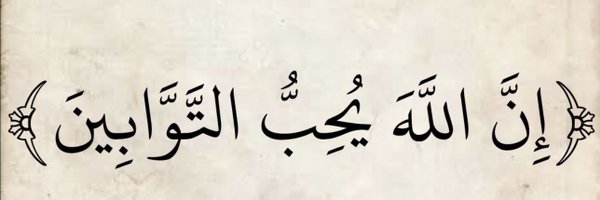 ﴿ إِنَّ اللَّهَ يُحِبُّ التَّوَّابِينَ ﴾